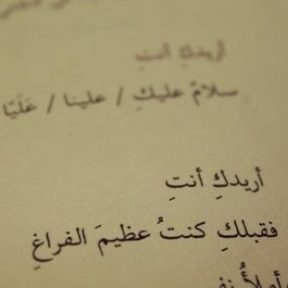 أريدكِ أنتِ
سلامٌ عليكِ / علينا / عَلَيّا
أريدكِ أنتِ
فقبلكِ كنتُ عظيمَ الفراغِ